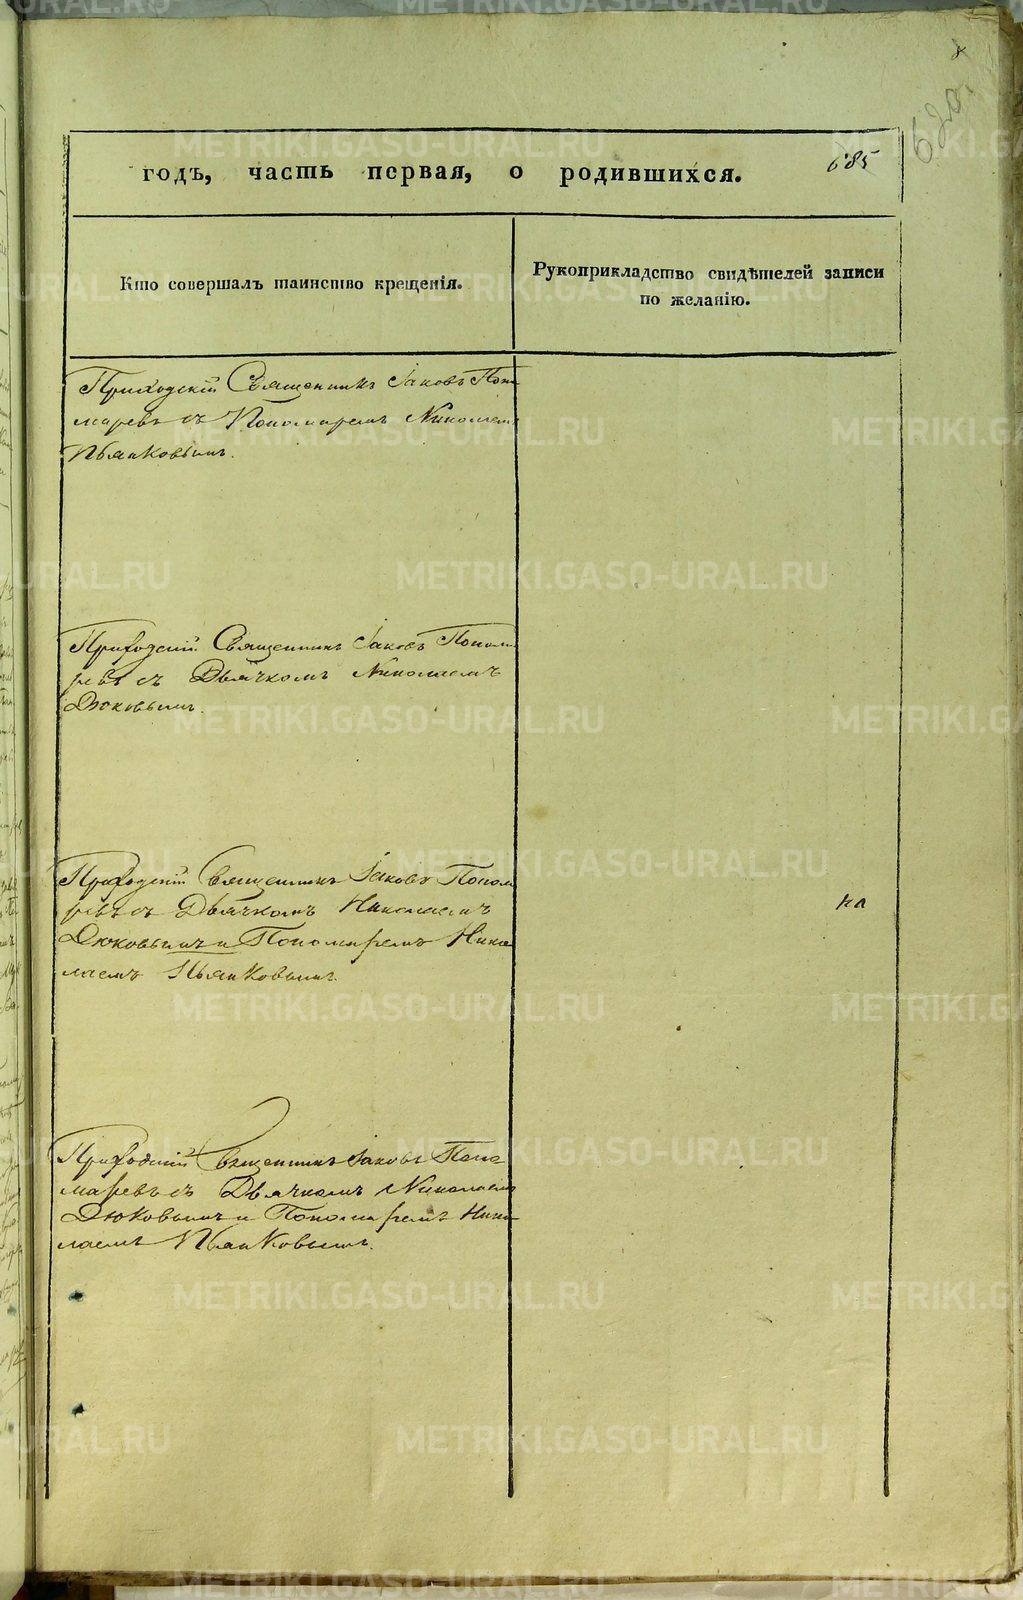 8
620.
годъ, часть первая, о родившихся. 685
Кто совершалъ таинство крещенія.
Рукоприкладство свидѣтелей записи
по желанію.
Приходскій Священникъ Іаковъ Поно
маревъ съ Пономаремъ Николаем
Пьянковымъ.
Приходскій Священникъ Іаковъ Понома
ревъ съ Дьячкомъ Николаемъ
Дюковымъ.
Приходскій Священникъ Іаковъ Понома
ревъ съ Дьячкомъ Николаемъ
Дюковымъ и Пономаремъ Нико
лаемъ Пьянковымъ.
на
Приходскій Священникъ Іаковъ Поно
маревъ съ Дьячкомъ Николаем
Дюковымъ и Пономаремъ Нико
лаемъ Пьянковымъ.
METRIKI.GASO-URAL.RU